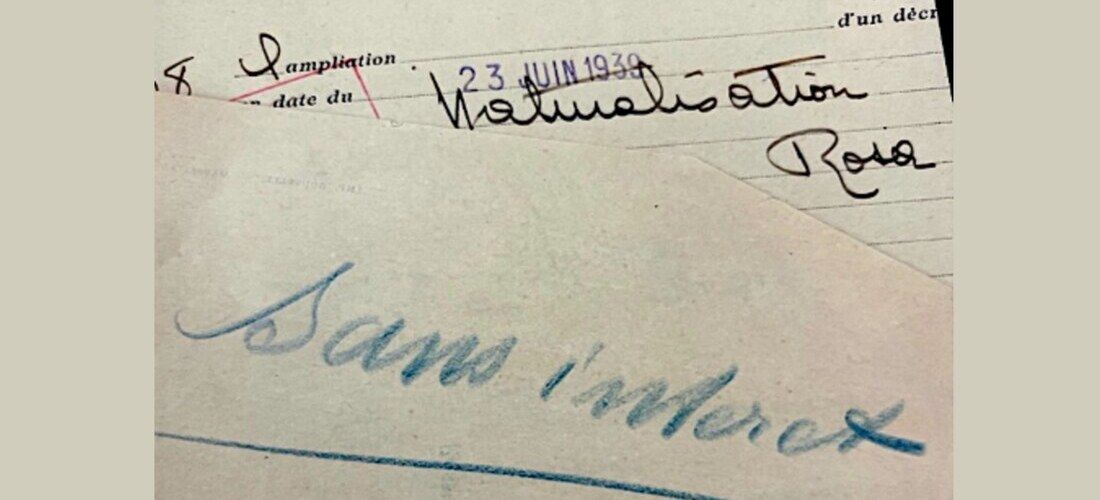 d'un décr
8 l'ampliation
date du 23 JUIN 1939
Naturalisation
Rosa
Sans interet